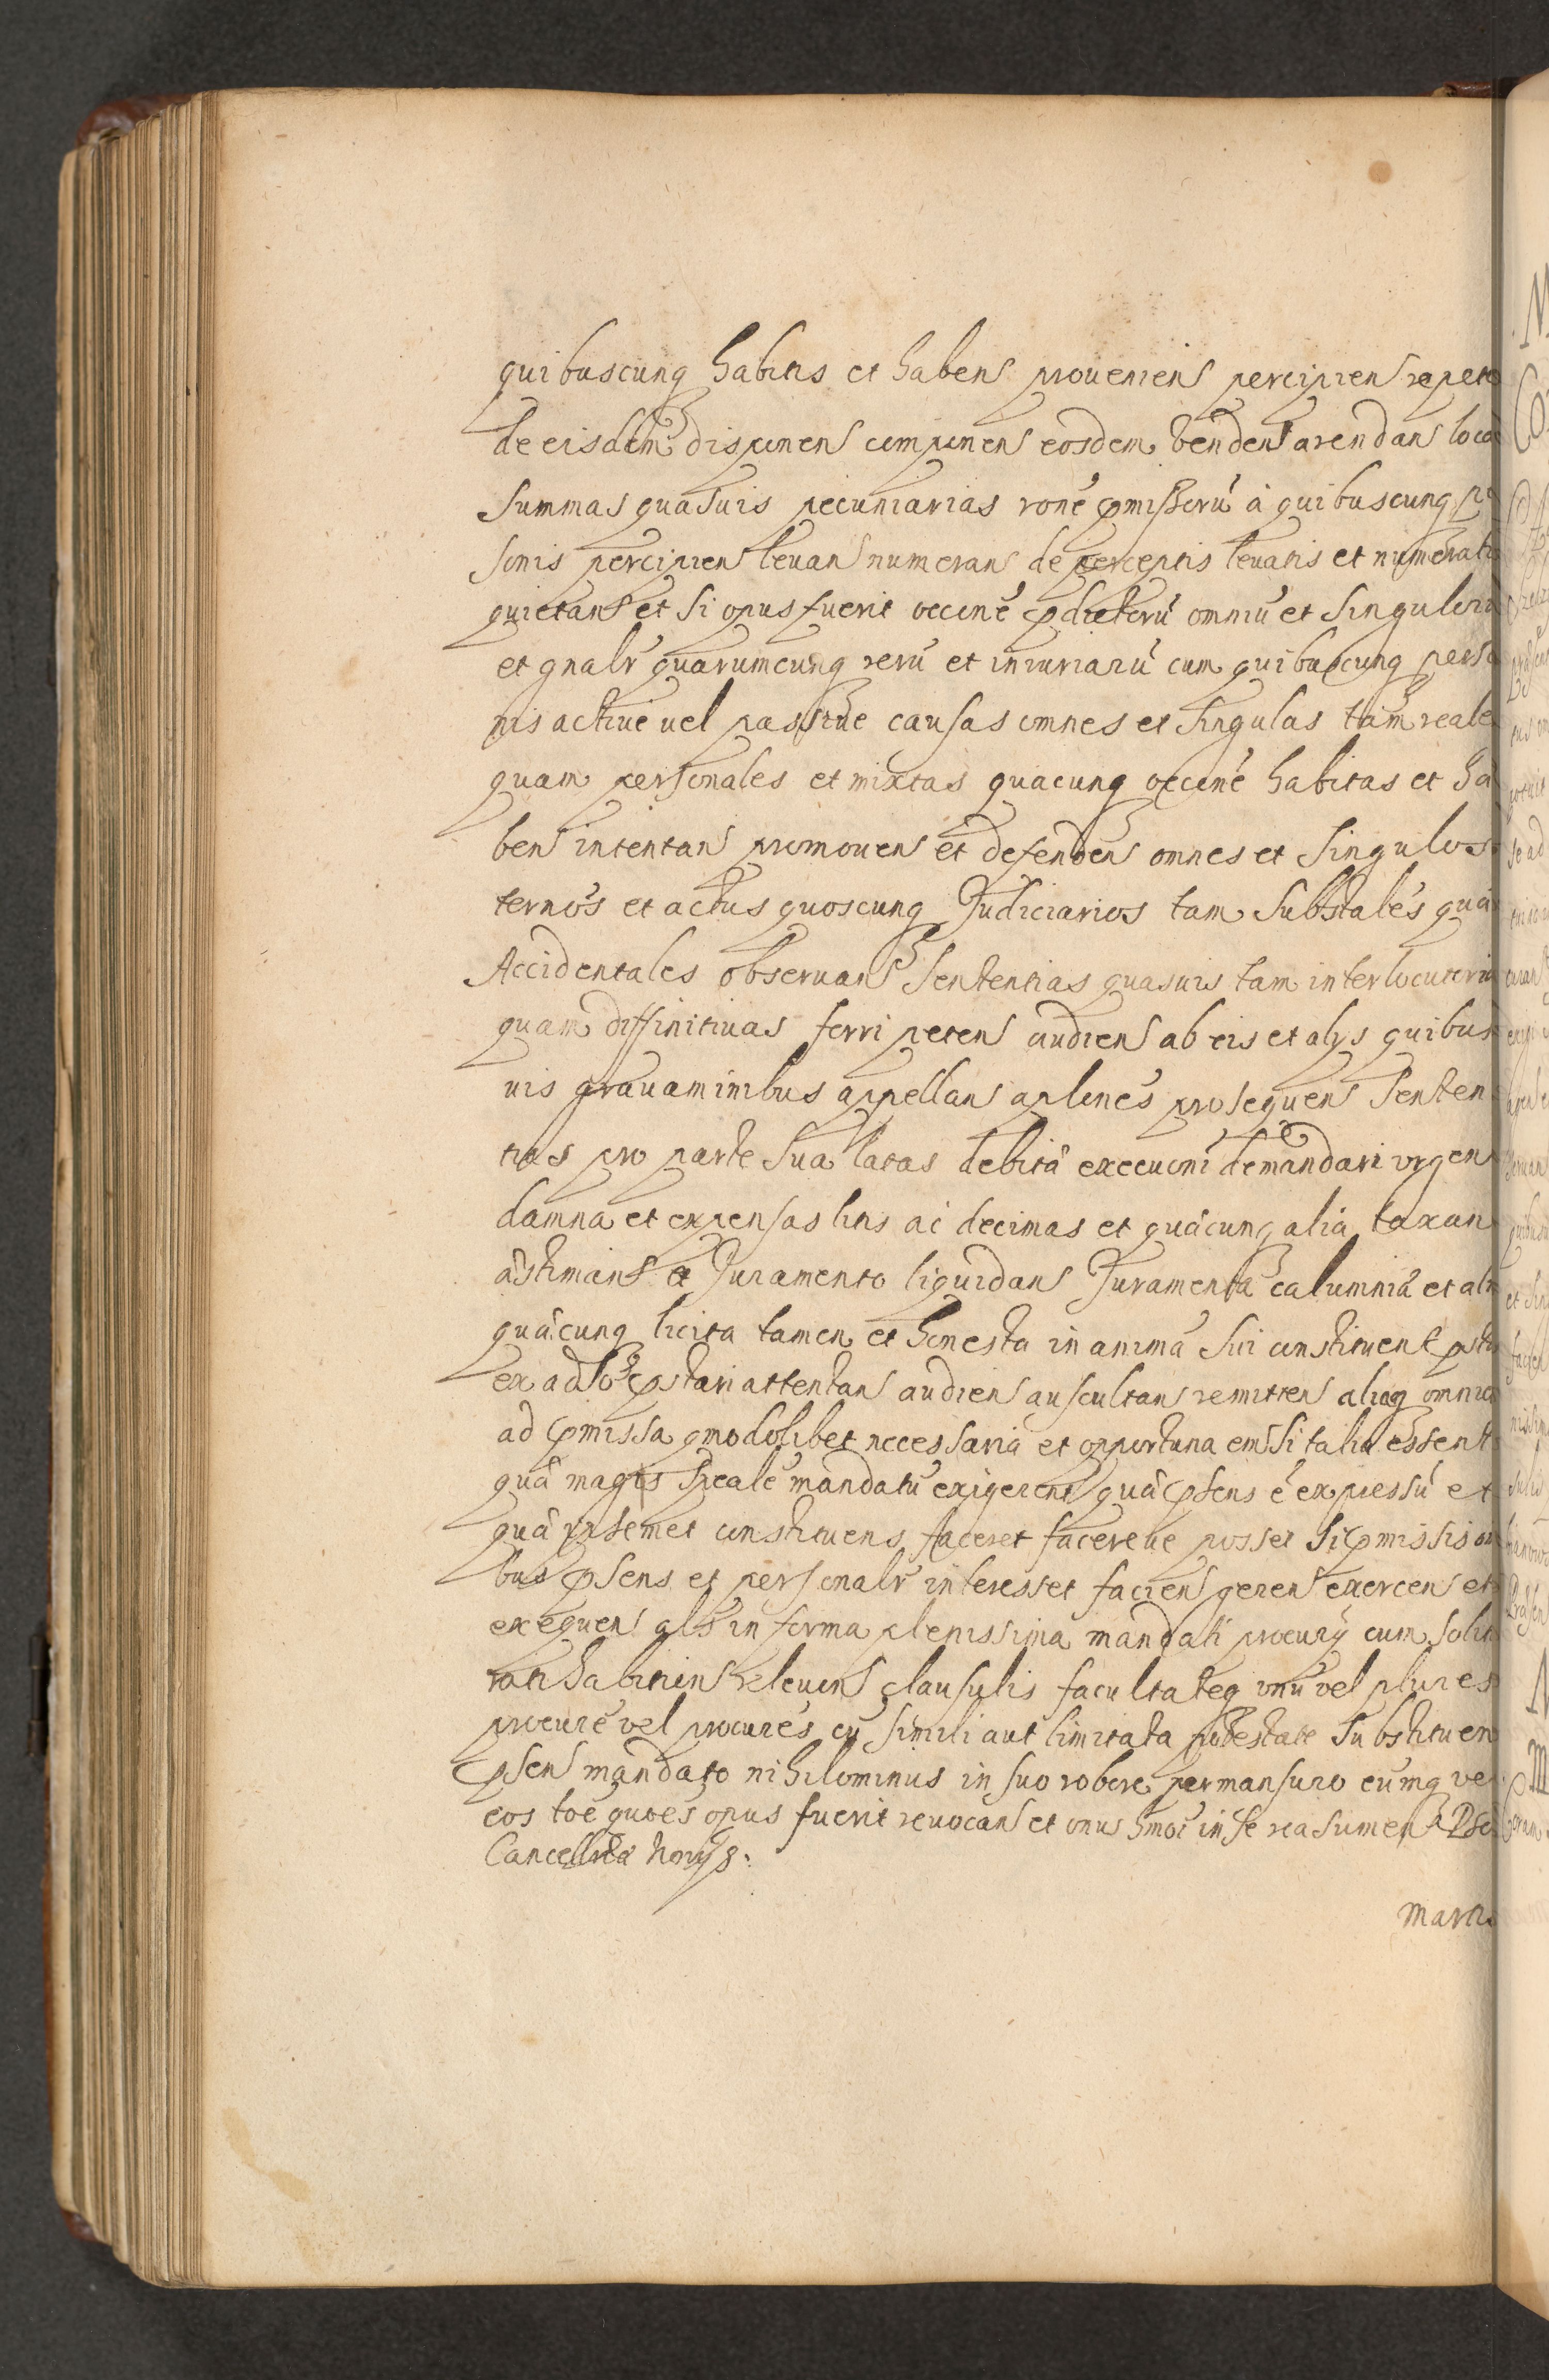 quibuscunq habitis et habens proueniens percipiens repeto
de eisdem disponens componens eosdem vendens arendans loca
Summas quasuis pecuniarias rone pmissoru à quibuscunq per
sonis percipiens leuans numerans de perceptis leuatis et numerati
quietans et si opus fuerit occone pdictoru omniu et singuloru
et gnalr quarumcunq reru et iniuriaru cum quibuscunq perso
nis actiue uel passiue causas omnes et singulas tam reales
quam personales et mixtas quacunq occone habitas et ha
bens intentans promouens et defendens omnes et singulos
ternos et actus quoscunq Judiciarios tam Substales quam
Accidentales obseruans Sententias quasuis tam interlocutorias
quam diffinitiuas ferri petens audiens ab eis et alys quibus
uis grauaminibus appellans aplones prosequens Senten
tias pro parte sua latas debitâ execuoni demandari urgen
damna et expensas litis ac decimas et quâcunq alia taxans
âstimans et Juramento liquidans Juramenta calumniâ et alia
quâcunq licita tamen et honesta in animâ sui constituent psta
ex adso pstari attentans audiens auscultans remittens aliaq omnia
ad pmissa qmodolibet necessaria et opportuna em si talia essent
quâ magis speale mandatu exigerent quâ psens é expressu et
quâ ipsemet constituens faceret facereue posset si pmissis om
bus psens et personalr interesset faciens gerens exercens et
exequens als in forma plenissima mandati procury cum solit
rati habitions releuons clausulis facultateq unu vel plures
procure vel procures cu simili aut limitata potestate Substituen
psen mandato nihilominus in suo robore permansuro eumq vel
eos toe quoes opus fuerit reuocans et onus hmoi in se reasumen Pse
Cancellria
Marti